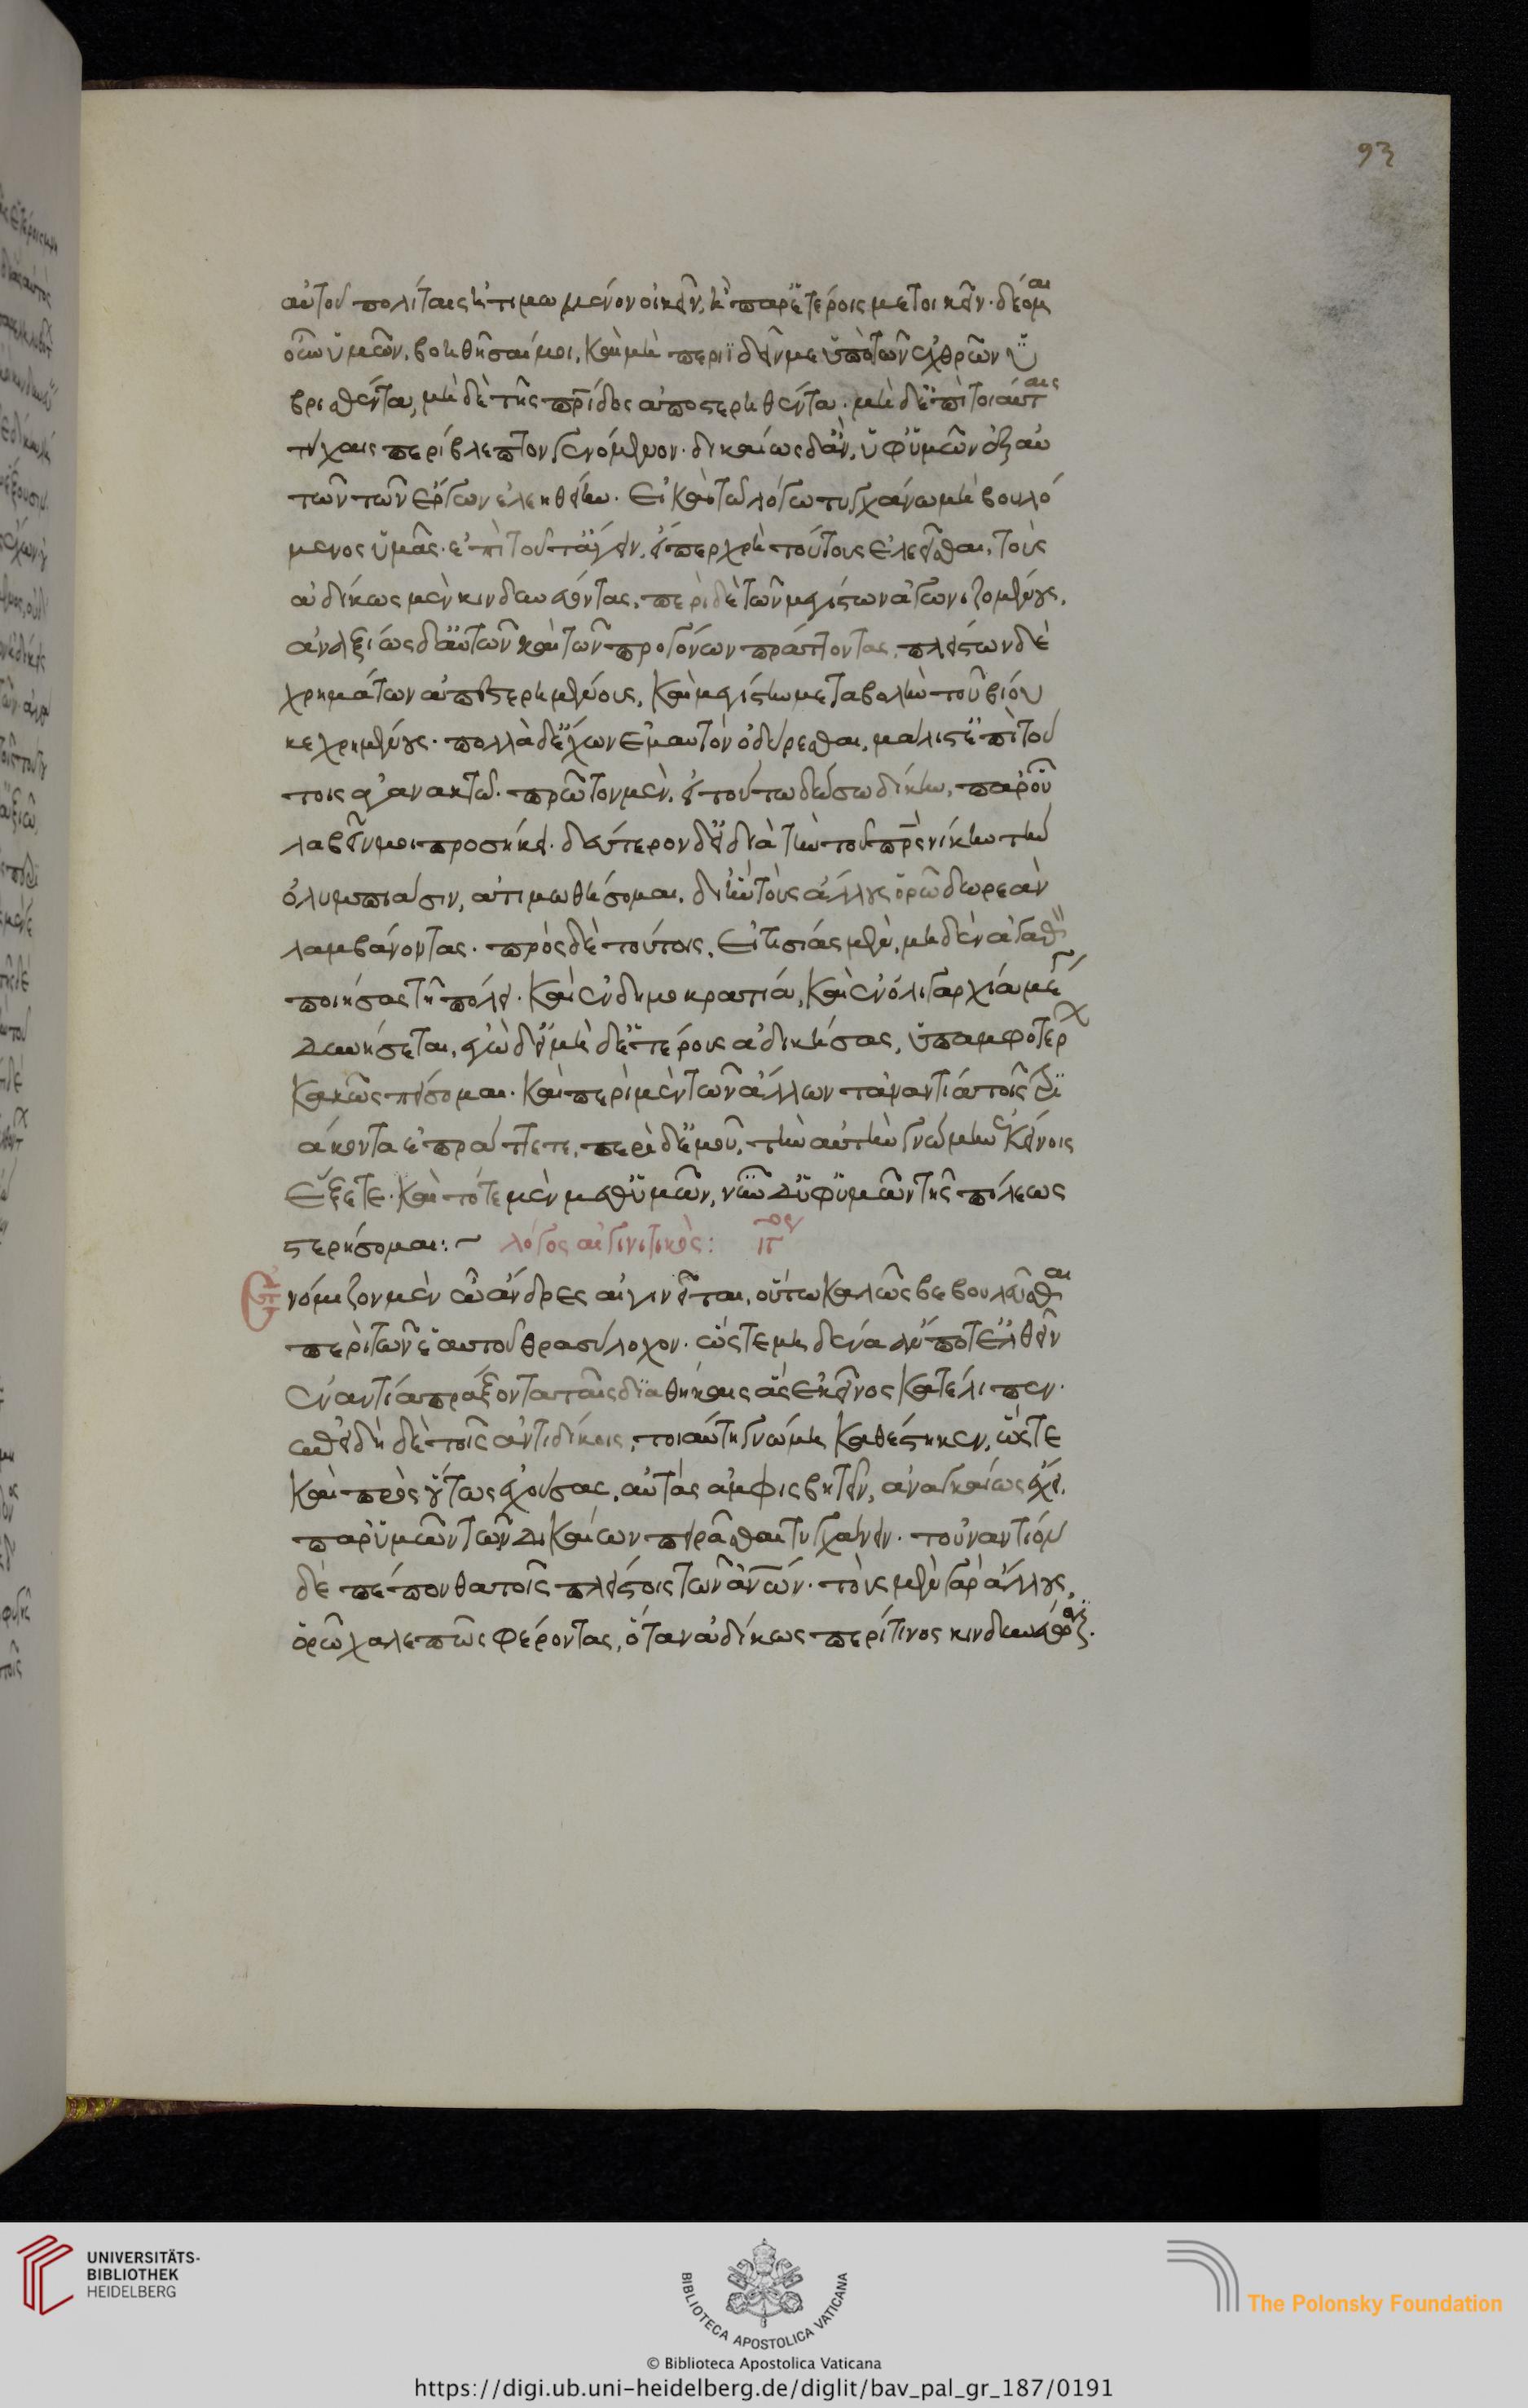 93
αὐτοῦ πολίταις ἠτιμωμένον οἰκεῖν, ἢ παρ' ἑτέροις μετοικεῖν. δέομαι
οὖν ὑμῶν, βοηθῆσαί μοι, καὶ μὴ περιϊδεῖν με ὑπὸ τῶν ἐχθρῶν ὑ
βρισθέντα, μὴ δὲ τῆς πρίδος ἀποστερηθέντα. μὴ δ' ἐπὶ τοιαύταις
τύχαις περίβλεπτον γενόμενον. δικαίως δ' ἂν, ὑφ' ὑμῶν ἐξ αὐ
τῶν τῶν ἔργων ἐλεηθείην. εἰ καὶ τῷ λόγω τυγχάνω μὴ βουλό
μενος ὑμᾶς ἐπὶ τοῦτ' ἄγειν, εἴπερ χρὴ τούτους ἐλεεῖσθαι, τοὺς
ἀδίκως μὲν κινδυνεύοντας, περὶ δὲ τῶν μεγίστων ἀγωνιζομένους,
ἀναξίως δ' αὑτῶν καὶ τῶν προγόνων πράττοντας, πλείστων δὲ
χρημάτων ἀπεστερημένους, καὶ μεγίστη μεταβολῆ τοῦ βίου
κεχρημένους. πολλὰ δ' ἔχων ἐμαυτὸν ὀδύρεσθαι, μάλιστ' ἐπὶ τού
τοις ἀγανακτῶ. πρῶτον μὲν, εἰ τούτω δώσω δίκην, παρ' οὗ
λαβεῖν μοι προσήκει. δεύτερον δ' εἰ διὰ τὴν τοῦ πρς νίκην τὴν
ὀλυμπίασιν, ἀτιμωθήσομαι, δι' ἣν τοὺς ἄλλους ὁρῶ δωρεὰν
λαμβάνοντας. πρὸς δὲ τούτοις, εἰ τισίας μὲν, μηδὲν ἀγαθὸν
ποιήσας τῆ πόλει. καὶ ἐν δημοκρατία, καὶ ἐν ὀλιγαρχία μέγα
δυνήσεται, ἐγὼ δ' εἰ μὴ δ' ἑτέρους ἀδικήσας, ὑπ' ἀμφοτέρων
κακῶς πείσομαι. καὶ περὶ μὲν τῶν ἄλλων τἀναντία τοῖς τρι
άκοντα ἐπράττετε, περὶ δ' ἐμοῦ, τὴν αὐτὴν γνώμην ἐκείνοις
ἕξετε. καὶ τότε μὲν μεθ' ὑμῶν, νῦν δ' ὑφ' ὑμῶν τῆς πόλεως
στερήσομαι:~ λόγος αἰγινιτικὸς:
Ενόμιζον μὲν ὦ ἄνδρες αἰγινῆται, οὕτω καλῶς βεβουλεῦσθαι
περὶ τῶν ἑαυτοῦ θρασύλοχον. ὥστε μηδένα ἄν ποτ' ἐλθεῖν
ἐναντία πράξοντα ταῖς διαθήκαις ἃς ἐκεῖνος κατέλιπεν.
ἐπειδὴ δὲ τοῖς ἀντιδίκοις, τοιαύτη γνώμη καθέστηκεν, ὥστε
καὶ πρὸς οὕτως ἐχούσας, αὐτὰς ἀμφισβητεῖν, ἀναγκαίως ἔχει,
παρ' ὑμῶν τῶν δικαίων πειρᾶσθαι τυγχάνειν. τοὐναντίον
δὲ πέπονθα τοῖς πλείστοις τῶν ἀνῶν. τοὺς μὲν γὰρ ἄλλους,
ὁρῶ χαλεπῶς φέροντας, ὅταν ἀδίκως περί τινος κινδυνεύωσιν.
UNIVERSITÄTS-
BIBLIOTHEK
HEIDELBERG
BIBLIOTECA APOSTOLICA VATICANA
The Polonsky Foundation
© Biblioteca Apostolica Vaticana
https://digi.ub.uni-heidelberg.de/diglit/bav_pal_gr_187/0191